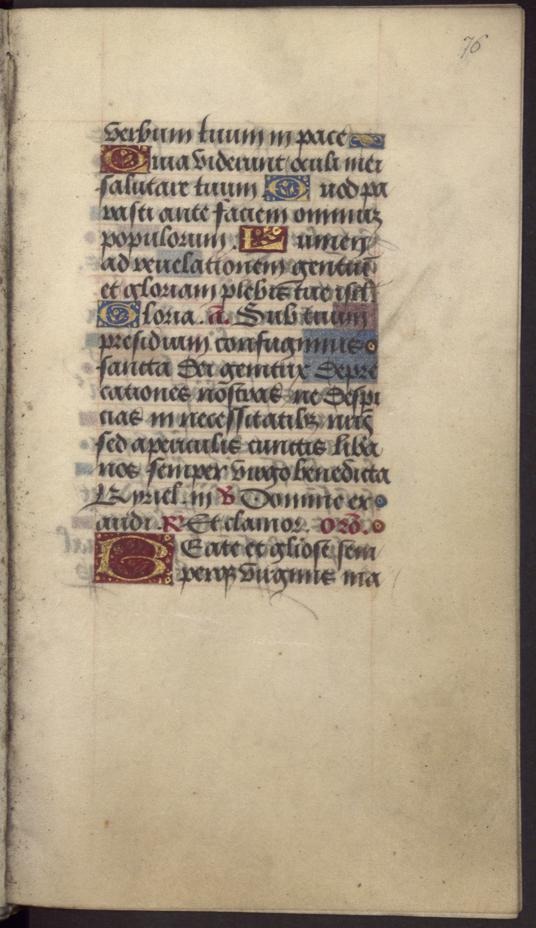 76
verbum tuum in pace
Quia viderunt oculi mei
salutare tuum Quod pa
rasti ante faciem omniuz
populorum. Lumen
ad reuelationem gentiū
et gloriam plebis tue isrl
Gloria. a. Sub tuum
presidium confugimus
sancta dei genitrix depre
cationes nostras ne despi
cias in necessitatibz nr̄is
sed a periculis cunctis libe
nos semper virgo benedicta
Kyriel. m V Domine ex
audi. R Et clamor. Orō.
Beate et gliose sem
perqz virginis ma